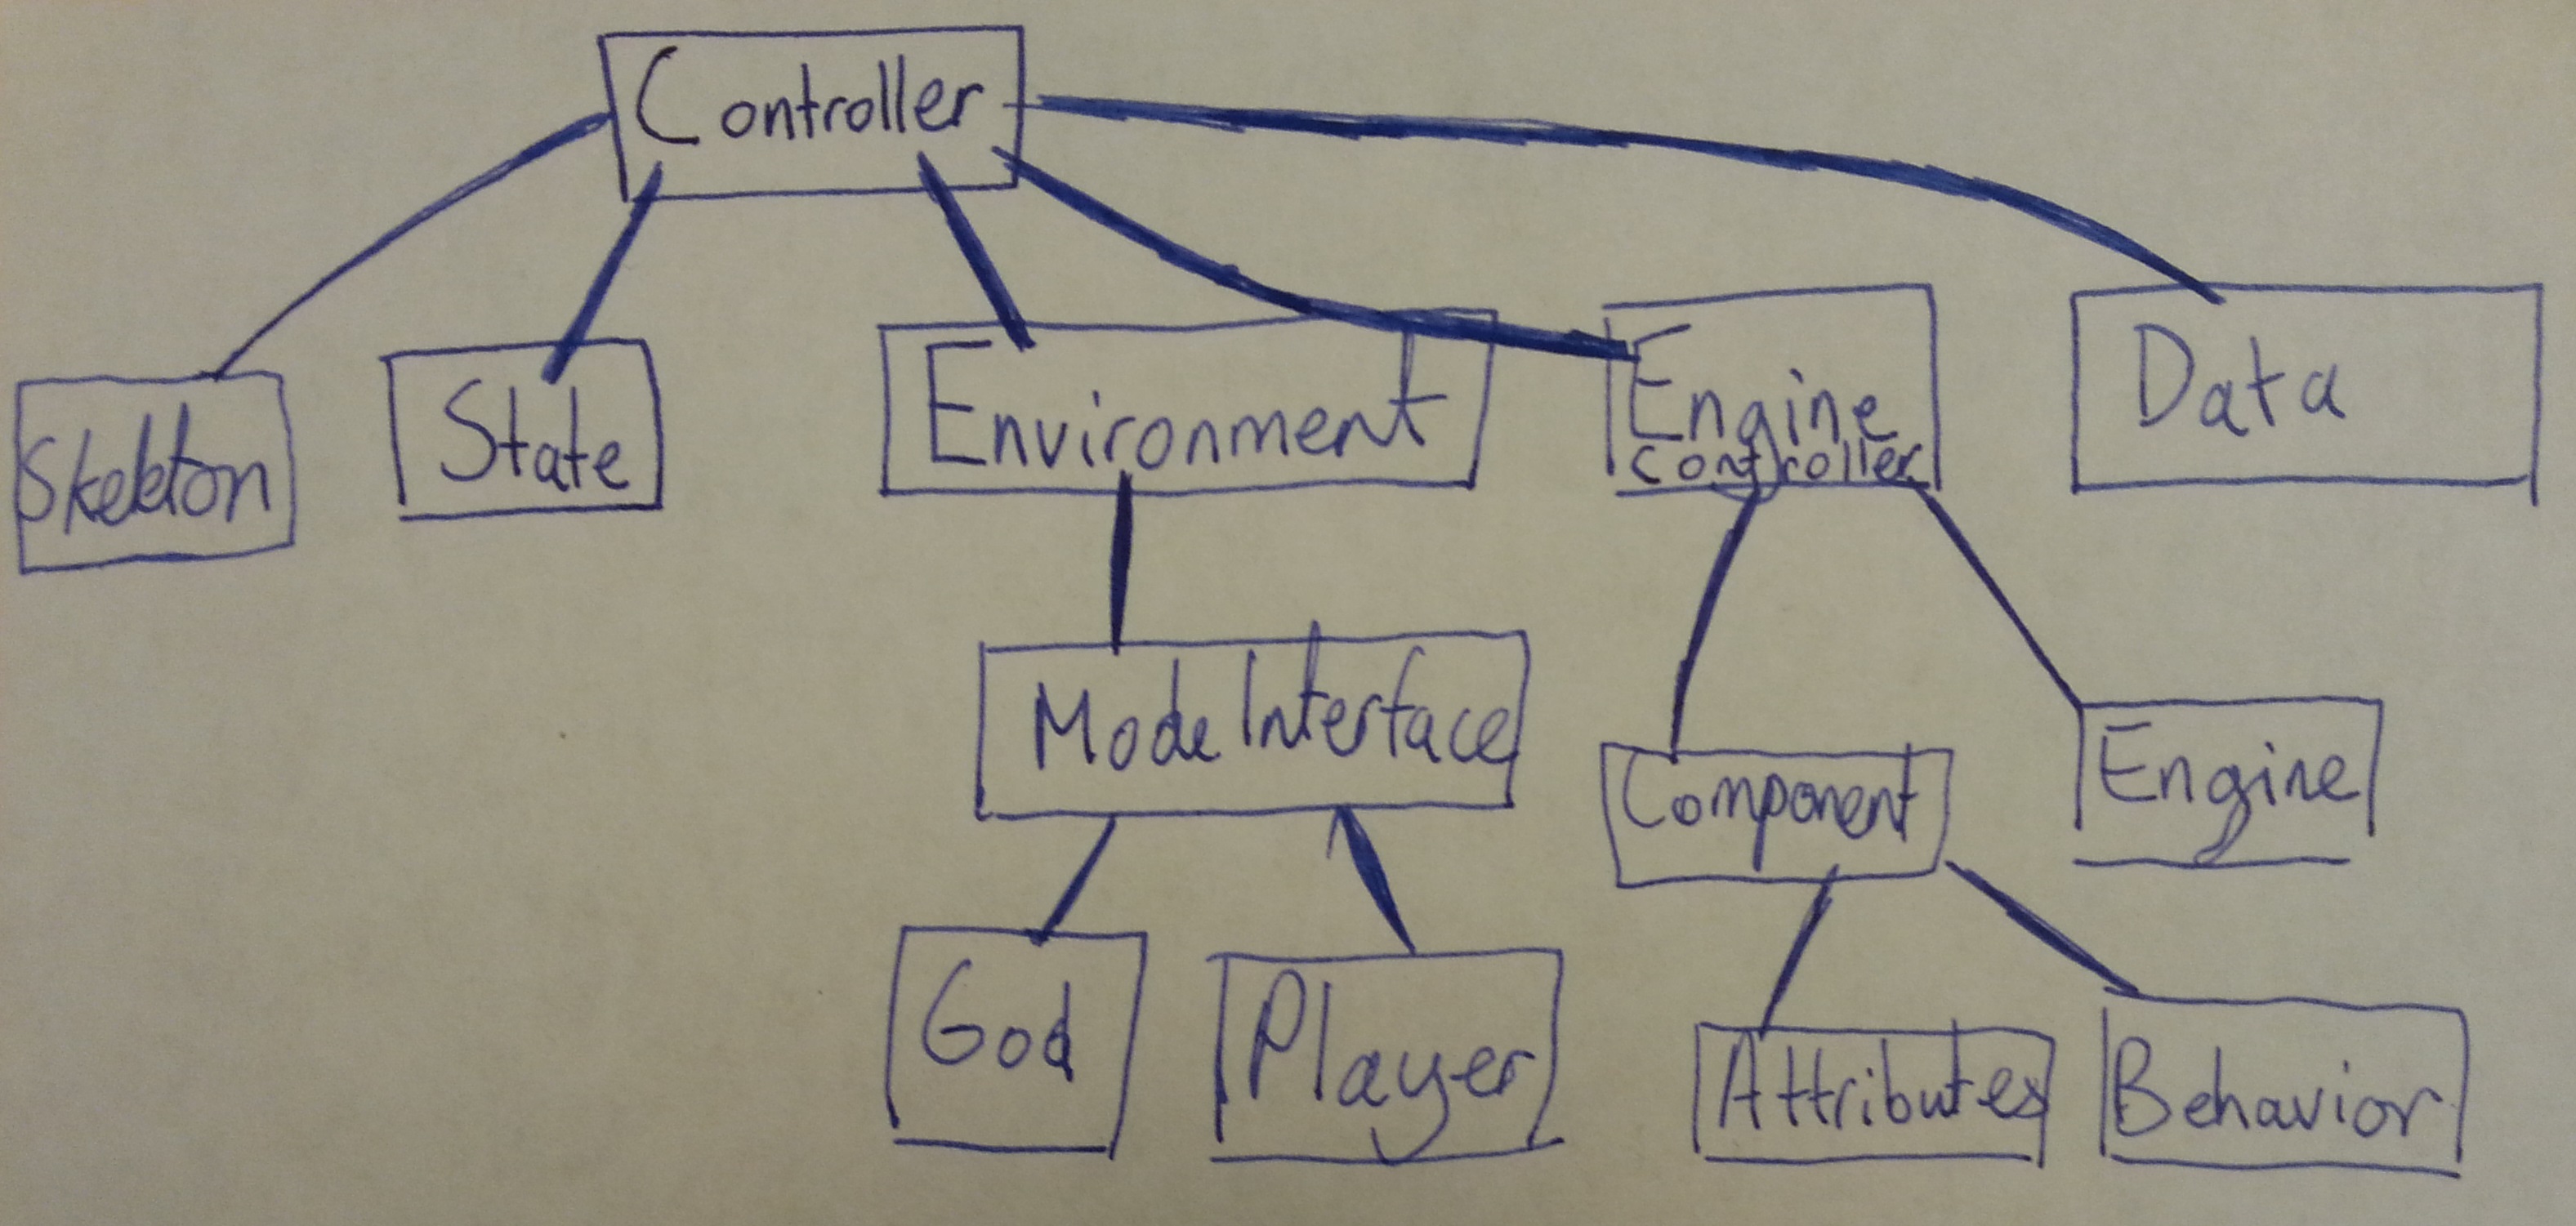 Controller
Skeleton
State
Environment
Engine
Controller
Data
Mode Interface
Component
Engine
God
Player
Attributes
Behavior